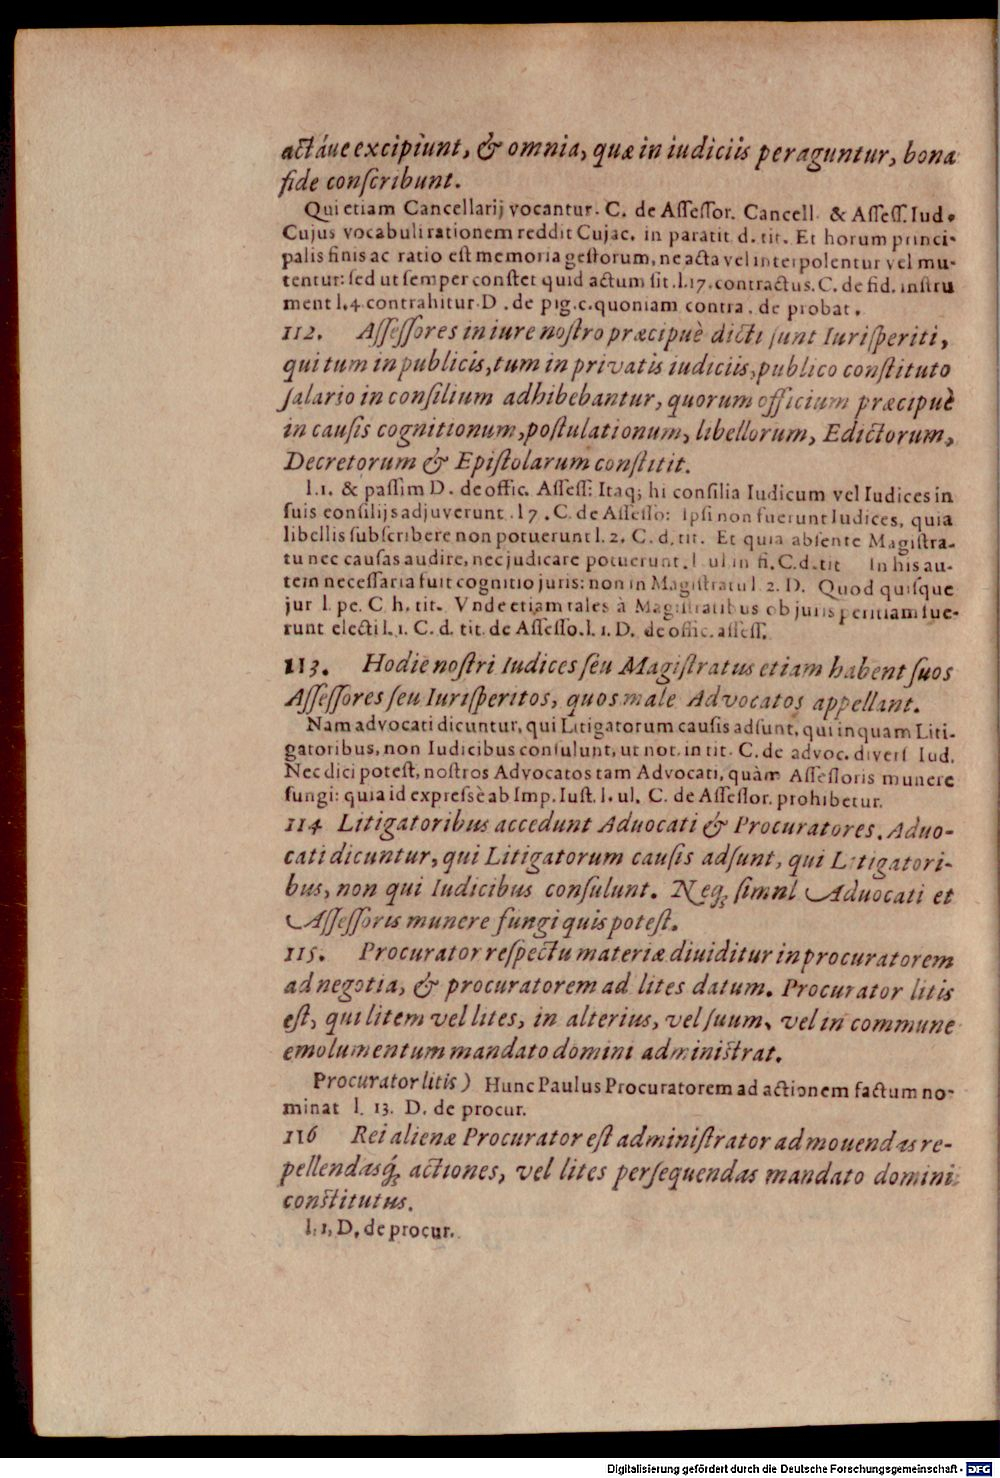 actáue excipiunt, & omnia, quæ in iudiciis peraguntur, bona
fide conſcribunt.
Qui etiam Cancellarij vocantur. C. de Aſſeſſor. Cancell. & Aſſeſſ. Iud.
Cujus vocabuli rationem reddit Cujac. in paratit. d. tit. Et horum princi-
palis finis ac ratio eſt memoria geſtorum, ne acta vel interpolentur vel mu-
tentur: ſed ut ſemper conſtet quid actum ſit. l. 17. contractus. C. de fid. inſtru
ment l. 4. contrahitur. D. de pig. c. quoniam contra. de probat.
112. Aſſeſſores in iure noſtro præcipuè dicti ſunt Iuriſperiti,
qui tum in publicis, tum in privatis iudiciis, publico conſtituto
ſalario in conſilium adhibebantur, quorum officium præcipuè
in cauſis cognitionum, poſtulationum, libellorum, Edictorum,
Decretorum & Epiſtolarum conſtitit.
l. 1. & paſſim D. de offic. Aſſeſſ. Itaq; hi conſilia Iudicum vel Iudices in
ſuis conſilijs adjuverunt. l 7. C. de Aſſeſſo: Ipſi non fuerunt Iudices, quia
libellis ſubſcribere non potuerunt l. 2. C. d. tit. Et quia abſente Magiſtra-
tu nec cauſas audire, nec judicare potuerunt. l. ul in fi. C. d. tit In his au-
tem neceſſaria fuit cognitio juris: non in Magiſtratu l. 2. D. Quod quiſque
jur l. pe. C h. tit. Vnde etiam tales à Magiſtratibus ob juris peritiam fue-
runt electi l. 1. C. d. tit. de Aſſeſſo. l. 1. D. de offic. aſſeſſ.
113. Hodie noſtri Iudices ſeu Magiſtratus etiam habent ſuos
Aſſeſſores ſeu Iuriſperitos, quos male Advocatos appellant.
Nam advocati dicuntur, qui Litigatorum cauſis adſunt, qui inquam Liti-
gatoribus, non Iudicibus conſulunt, ut not. in tit. C. de advoc. diverſ Iud.
Nec dici poteſt, noſtros Advocatos tam Advocati, quàm Aſſeſſoris munere
fungi: quia id expreſsè ab Imp. Iuſt. l. ul. C. de Aſſeſſor. prohibetur.
114 Litigatoribus accedunt Aduocati & Procuratores. Aduo-
cati dicuntur, qui Litigatorum cauſis adſunt, qui Litigatori-
bus, non qui Iudicibus conſulunt. Neq; ſimnl Aduocati et
Aſſeſſoris munere fungi quis poteſt.
115. Procurator reſpectu materiæ diuiditur in procuratorem
ad negotia, & procuratorem ad lites datum. Procurator litis
eſt, qui litem vel lites, in alterius, vel ſuum, vel in commune
emolumentum mandato domini adminiſtrat.
Procurator litis) Hunc Paulus Procuratorem ad actionem factum no-
minat l. 13. D. de procur.
116 Rei alienæ Procurator eſt adminiſtrator ad mouendas re-
pellendasq́; actiones, vel lites perſequendas mandato domini
conſtitutus.
l. 1, D, de procur.
Digitalisierung gefördert durch die Deutsche Forschungsgemeinschaft - DFG